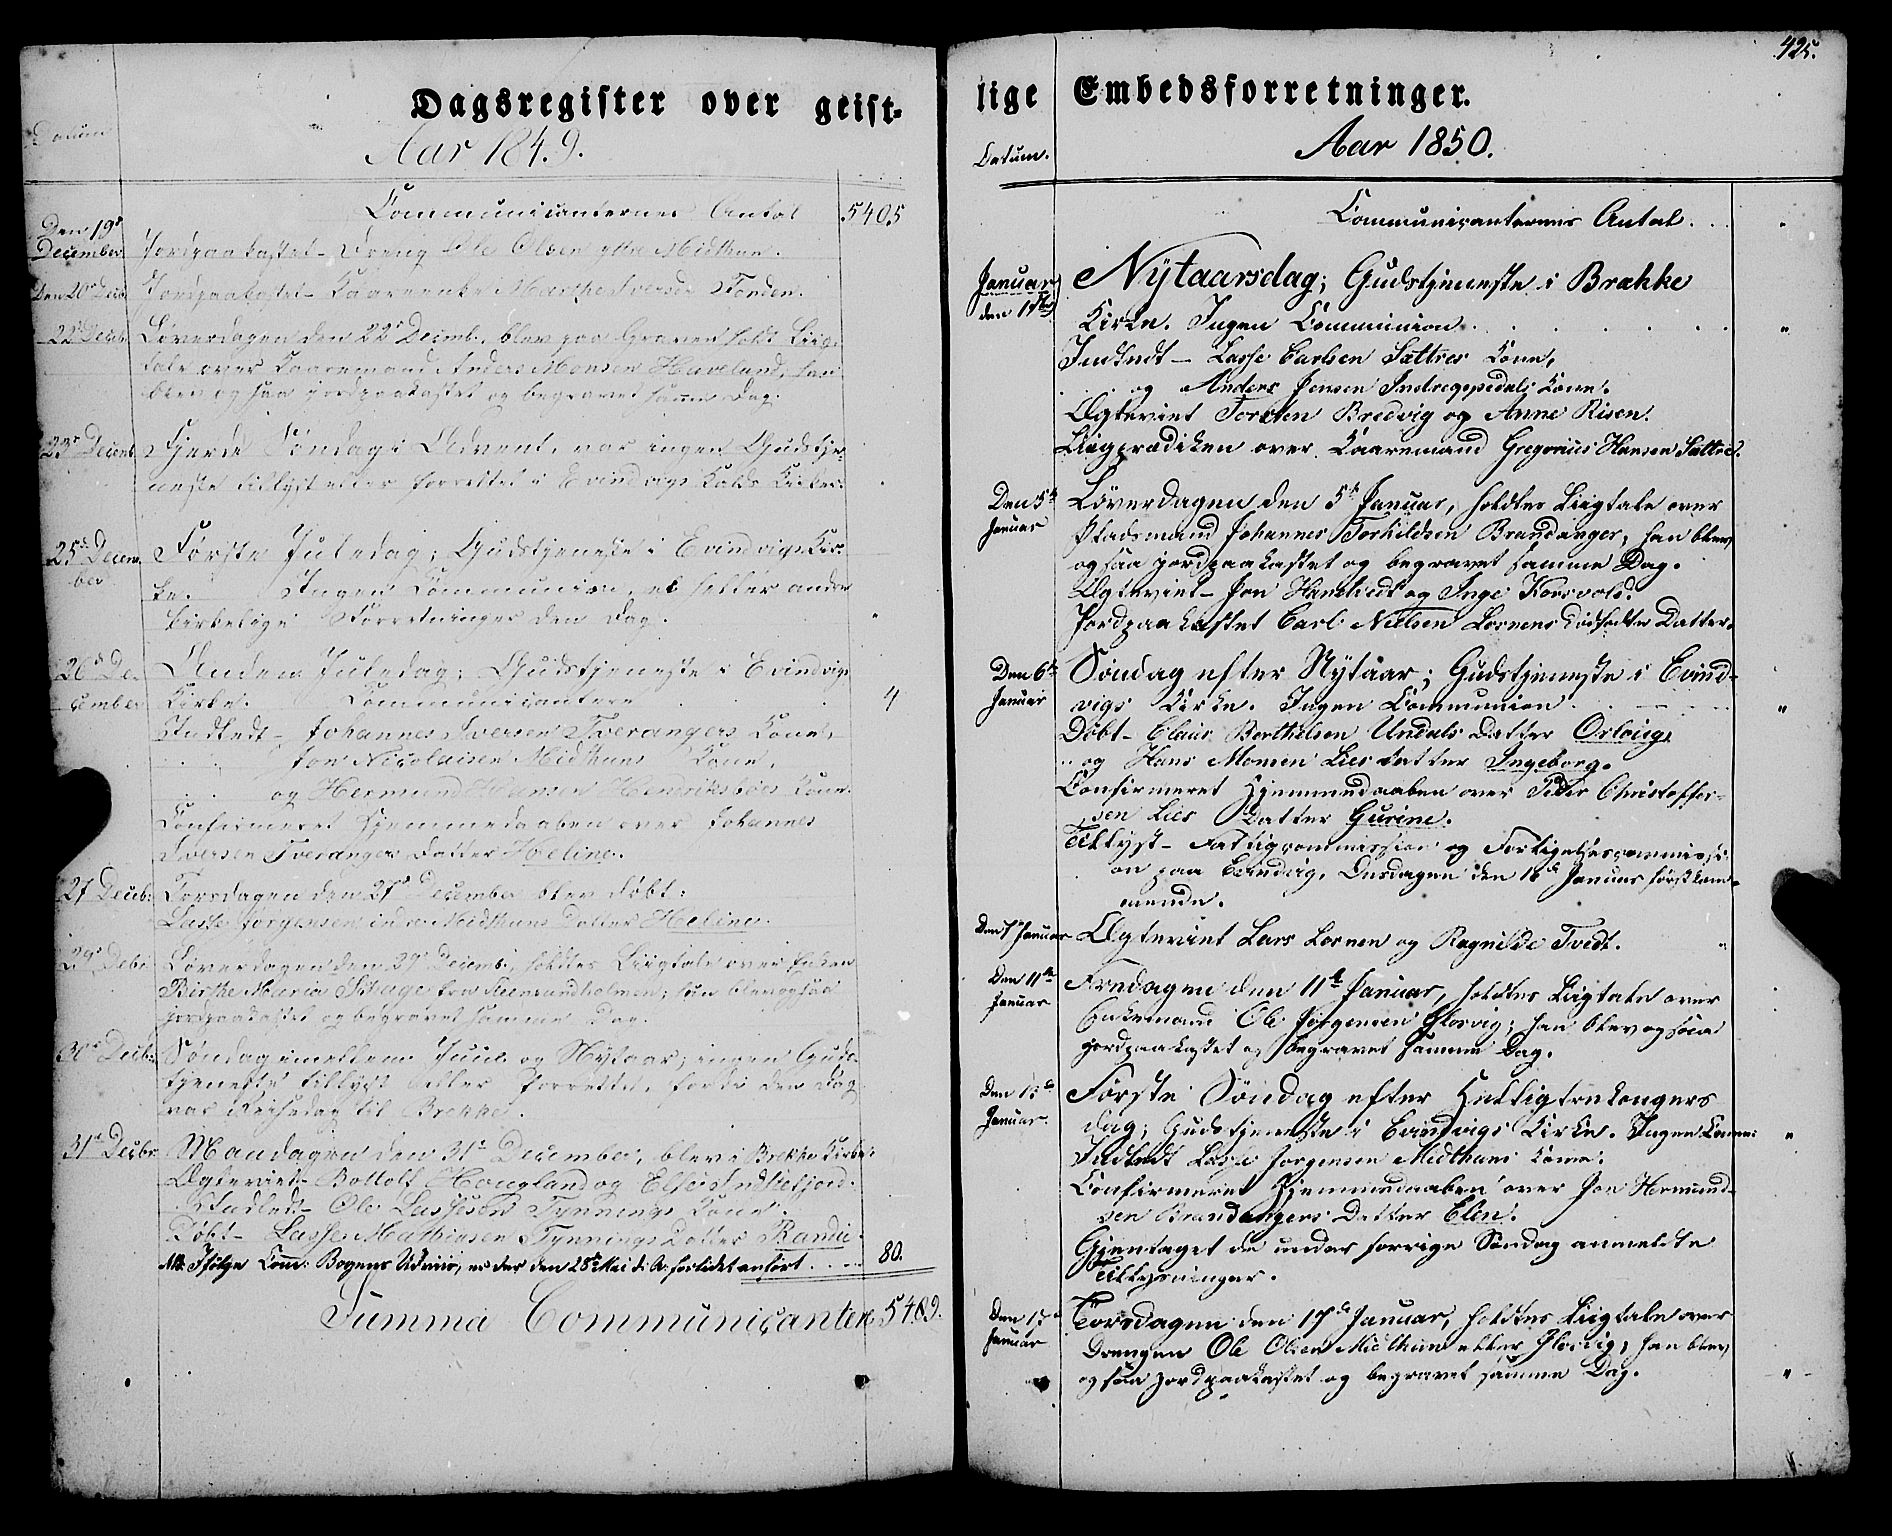 Dagsregister over geist-
Datum
Aar 1849.
Communicanternes Antal 5405
Den 19de December Jordpaakastet - Dreng Ole Olsen ytre Midthun.
Den 20de Decbr Jordpaakastet - Kaarenke Marthe Iversd. Fonden.
22de Decbr. Løverdagen den 22de Decemb., blev paa Graven holdt Liig-
tale over Kaaremand Anders Monsen Haveland, han
blev ogsaa jordpaakastet og begravet samme Dag.
23de Decemb. Fjerde Søndag i Advent, var ingen Gudstje-
neste tillyst eller forrettet i Evindvigs Kalds Kirker.
25de Decem-
ber Første Juledag; Gudstjeneste i Evindvigs Kir-
ke. Ingen Communion, ei heller andre
kirkelige Forretninger den Dag. "
26de De-
cember Anden Juledag; Gudstjeneste i Evindvigs
Kirke. Communicantere 4
Indledt - Johannes Iversen Tverangers Kone,
Jon Nicolaisen Midthuns Kone,
og Hermund Hansen Henriksbøes Kone.
Confirmeret Hjemmedaaben over Johannes
Iversen Tverangers Datter Heline.
27 Decbr: Torsdagen den 27de December blev døbt:
Lasse Jørgensen indre Midthuns Datter Heline.
29de Debr. Løverdagen den 29de Decemb., holdtes Liigtale over Enken
Birthe Maria fra Steensundholmen; hun blev ogsaa
jordpaakastet og begravet samme Dag.
30de Decbr: Søndag imellem Juul og Nytaar; ingen Guds-
tjeneste tillyst eller forrettet, fordi den Dag
var Reisedag til Brekke.
31de Decbr. Mandagen den 31te December, blev i Brekke Kirke:
Ægteviet - Bottolf Hougland og Else Indrefjord.
Indledt - Ole Lassesen Tynnings Kone.
Døbt - Lasse Mathiasen Tynnings Datter Randi.
NB. Ifølge Com: Bogens Udviis, er der den 28de Mai d: A: forlidet anført . . . . 80.
Summa Communicanter 5489.
425.
lige Embedsforretninger.
Datum.
Aar 1850.
Communicanternes Antal. . . "
Januar
den 1ste Nytaarsdag; Gudstjeneste i Brække
Kirke. Ingen Communion . . . . . . "
Indledt - Lasse Carlsen Sættres Kone,
og Anders Jensen Indregjepedals Kone.
Ægteviet Torsten Bredvig og Anne Risen.
Liigprædiken over Kaaremand Gregorius Hansen Sættre.
Den 5te
Januar Løverdagen den 5te Januar, holdtes Liigtale over
Pladsmand Johannes Torkildsen Brandanger, han blev
ogsaa jordpaakastet og begravet samme Dag.
Ægteviet - Jon Hantvedt og Inge Korsvold.
Jordpaakastet Carl Nielsen Lornens dødfødte Datter.
Den 6te
Januar Søndag efter Nytaar; Gudstjeneste i Evind-
vigs Kirke. Ingen Communion . . . "
Døbt - Claus Berthelsen Undals Datter Orloug,
og Hans Monsen Lies Datter Ingeborg.
Confirmeret Hjemmedaaben over Peder Christoffer-
sen Lies Datter Gurine.
Tillyst - Fattigcommission og Forligelsescommissi-
on paa Evindvig, Onsdagen den 16de Januar førstkom-
mende.
Den 7 Januar Ægteviet Lars Lornen og Ragnilde Tvedt. "
Den 11te
Januar Fredagen den 11te Januar, holdtes Liigtale over
Enkemand Ole Jørgensen Flosvig; han blev ogsaa
jordpaakastet og begravet samme Dag.
Den 13de
Januar. Første Søndag efter Helligtrekongers
dag; Gudstjeneste i Evindvigs Kirke. Ingen Comm: "
Indledt Lasse Jørgensen Midthuns Kone.
Confirmeret Hjemmedaaben over Jon Hermund-
sen Brandangers Datter Elen.
Gjentaget de under forrige Søndag anmeldte
Tillysninger.
Den 17de
Januar Torsdagen den 17de Januar, holdtes Liigtale over
Drengen Ole Olsen Midthun eller Flosvig; han blev
ogsaa jordpaakastet og begravet samme Dag. "